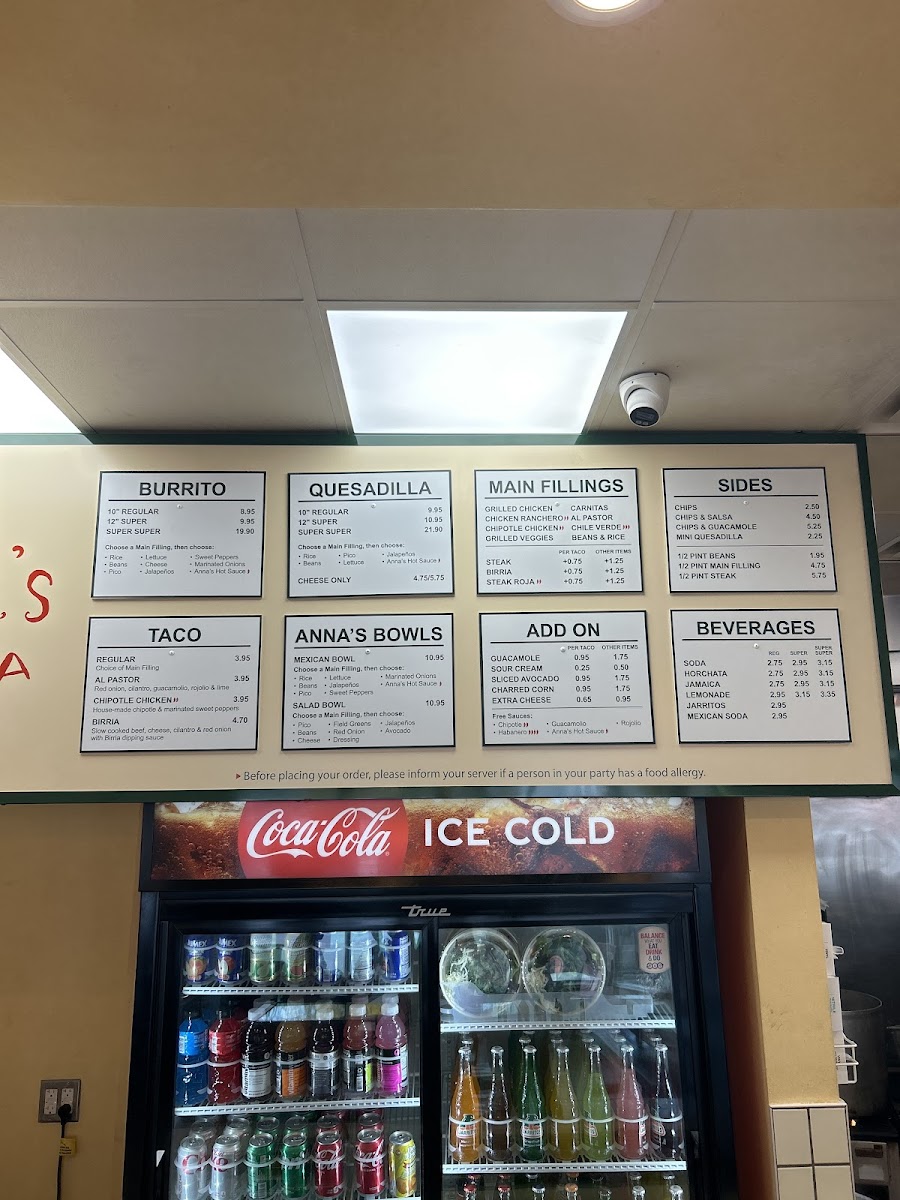 'S
A
BURRITO
10" REGULAR 8.95
12" SUPER 9.95
SUPER SUPER 19.90
Choose a Main Filling, then choose:
• Rice • Lettuce • Sweet Peppers
• Beans • Cheese • Marinated Onions
• Pico • Jalapeños • Anna's Hot Sauce
QUESADILLA
10" REGULAR 9.95
12" SUPER 10.95
SUPER SUPER 21.90
Choose a Main Filling, then choose:
• Rice • Pico • Jalapeños
• Beans • Lettuce • Anna's Hot Sauce
CHEESE ONLY 4.75/5.75
MAIN FILLINGS
GRILLED CHICKEN CARNITAS
CHICKEN RANCHERO AL PASTOR
CHIPOTLE CHICKEN CHILE VERDE
GRILLED VEGGIES BEANS & RICE
PER TACO OTHER ITEMS
STEAK +0.75 +1.25
BIRRIA +0.75 +1.25
STEAK ROJA +0.75 +1.25
SIDES
CHIPS 2.50
CHIPS & SALSA 4.50
CHIPS & GUACAMOLE 5.25
MINI QUESADILLA 2.25
1/2 PINT BEANS 1.95
1/2 PINT MAIN FILLING 4.75
1/2 PINT STEAK 5.75
TACO
REGULAR 3.95
Choice of Main Filling
AL PASTOR 3.95
Red onion, cilantro, guacamolio, rojolio & lime
CHIPOTLE CHICKEN 3.95
House-made chipotle & marinated sweet peppers
BIRRIA 4.70
Slow cooked beef, cheese, cilantro & red onion
with Birria dipping sauce
ANNA'S BOWLS
MEXICAN BOWL 10.95
Choose a Main Filling, then choose:
• Rice • Lettuce • Marinated Onions
• Beans • Jalapeños • Anna's Hot Sauce
• Pico • Sweet Peppers
SALAD BOWL 10.95
Choose a Main Filling, then choose:
• Pico • Field Greens • Jalapeños
• Beans • Red Onion • Avocado
• Cheese • Dressing
ADD ON
PER TACO OTHER ITEMS
GUACAMOLE 0.95 1.75
SOUR CREAM 0.25 0.50
SLICED AVOCADO 0.95 1.75
CHARRED CORN 0.95 1.75
EXTRA CHEESE 0.65 0.95
Free Sauces:
• Chipotle • Guacamolio • Rojolio
• Habanero • Anna's Hot Sauce
BEVERAGES
REG SUPER SUPER SUPER
SODA 2.75 2.95 3.15
HORCHATA 2.75 2.95 3.15
JAMAICA 2.75 2.95 3.15
LEMONADE 2.95 3.15 3.35
JARRITOS 2.95
MEXICAN SODA 2.95
Before placing your order, please inform your server if a person in your party has a food allergy.
Coca-Cola ICE COLD
true
BALANCE
WHAT YOU
EAT
DRINK
& DO